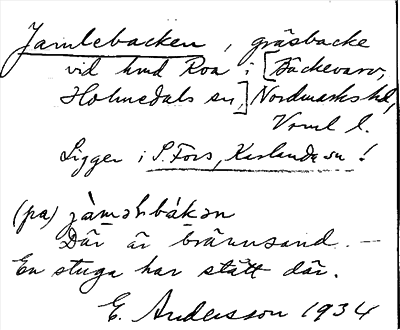 Jamlebacken, gräsbacke
vid hmd Roa i [Bäckevarv,
Holmedals sn,] Nordmarks hd,
Vrml l.
Ligger i S. Fors, Karlanda sn!
(pa) jàməlıbákən
Där är brännsand. —
En stuga har stått där.
E. Andersson 1934